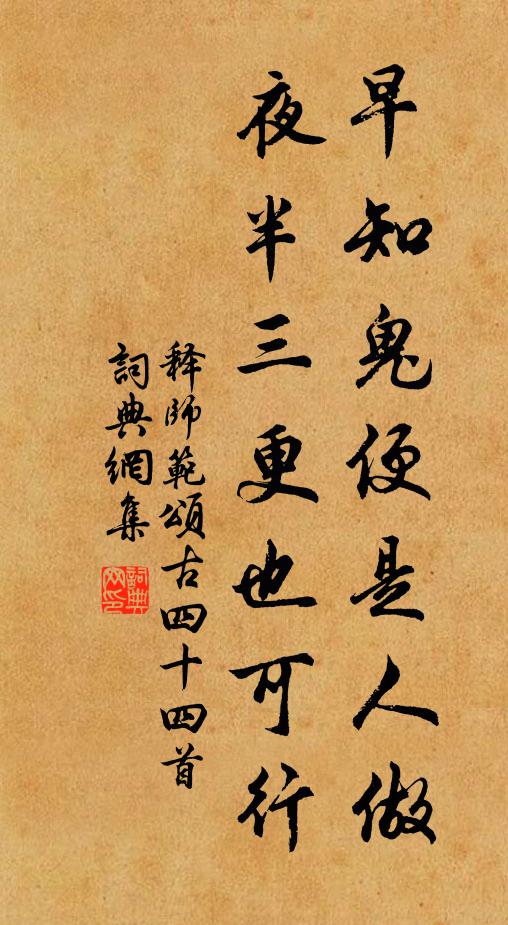 早知鬼便是人做
夜半三更也可行
释師範頌古四十四首
詞典網集
詞典网印